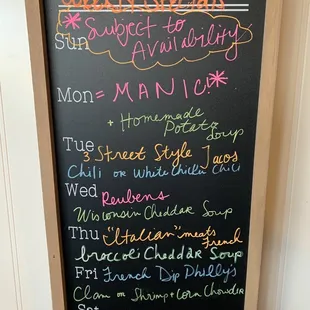 Weekly Specials
*Subject to
Sun
Availability*
Mon = MANIC!*
+ Homemade
Potato
Soup
Tue
3 Street Style Tacos
Chili or White Chicken Chili
Wed
Reubens
Wisconsin Cheddar Soup
Thu "Italian" meats
French
broccoli Cheddar Soup
Fri French Dip Philly's
Clam or Shrimp + Corn Chowder
Sat